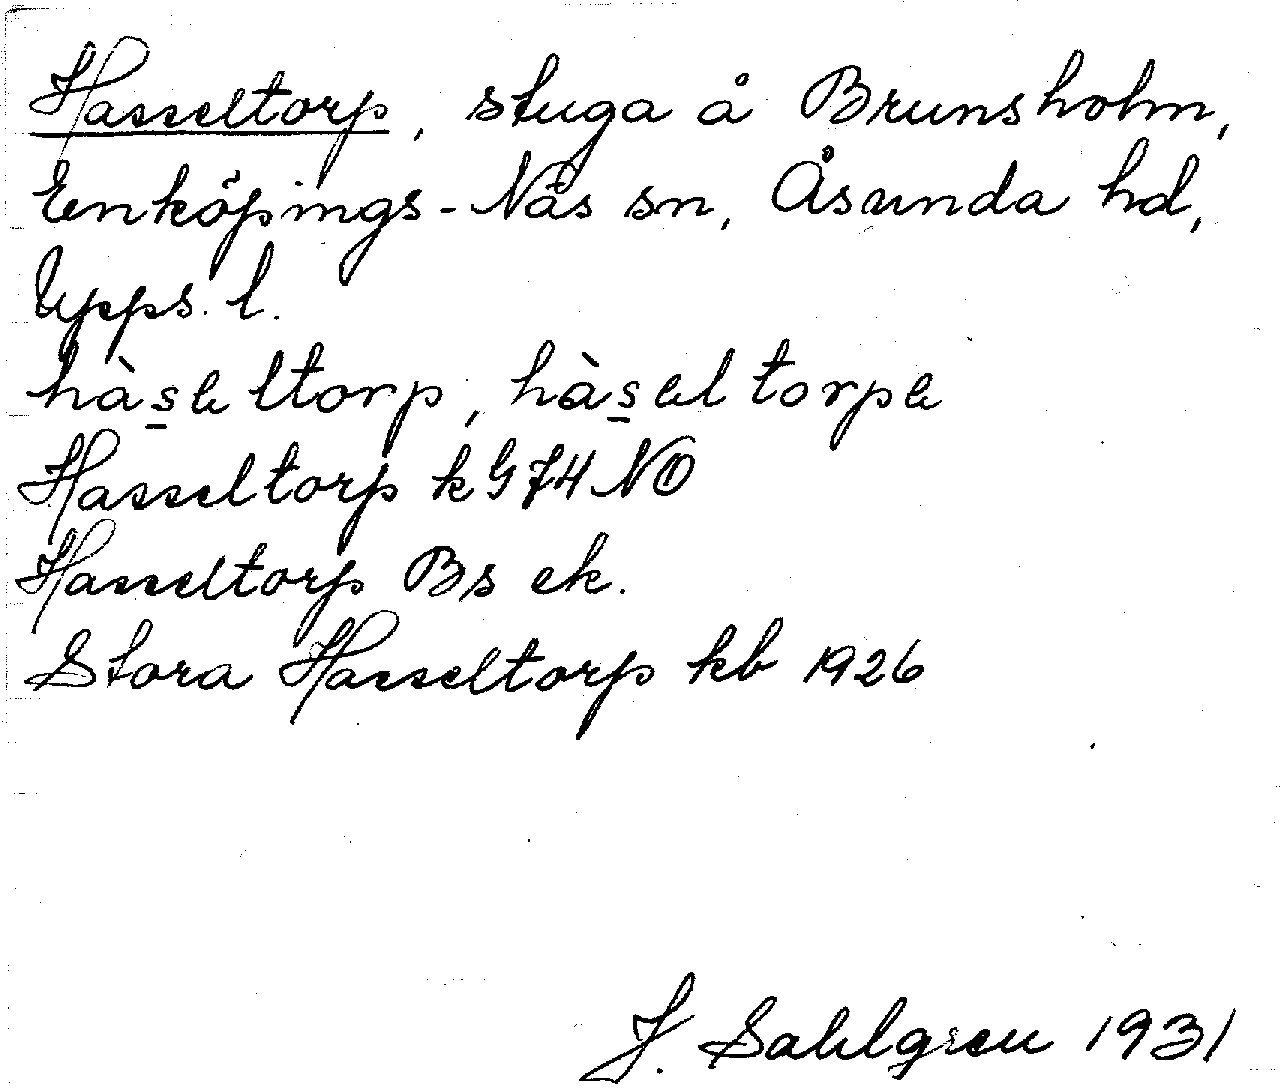 Hasseltorp, stuga å Brunsholm,
Enköpings-Näs sn, Åsunda hd,
Upps. l.
hàs̲eltorp, hàs̲eltorpe
Hasseltorp k G 74 NO
Hasseltorp Bs ek.
Stora Hasseltorp kb 1926
J. Sahlgren 1931